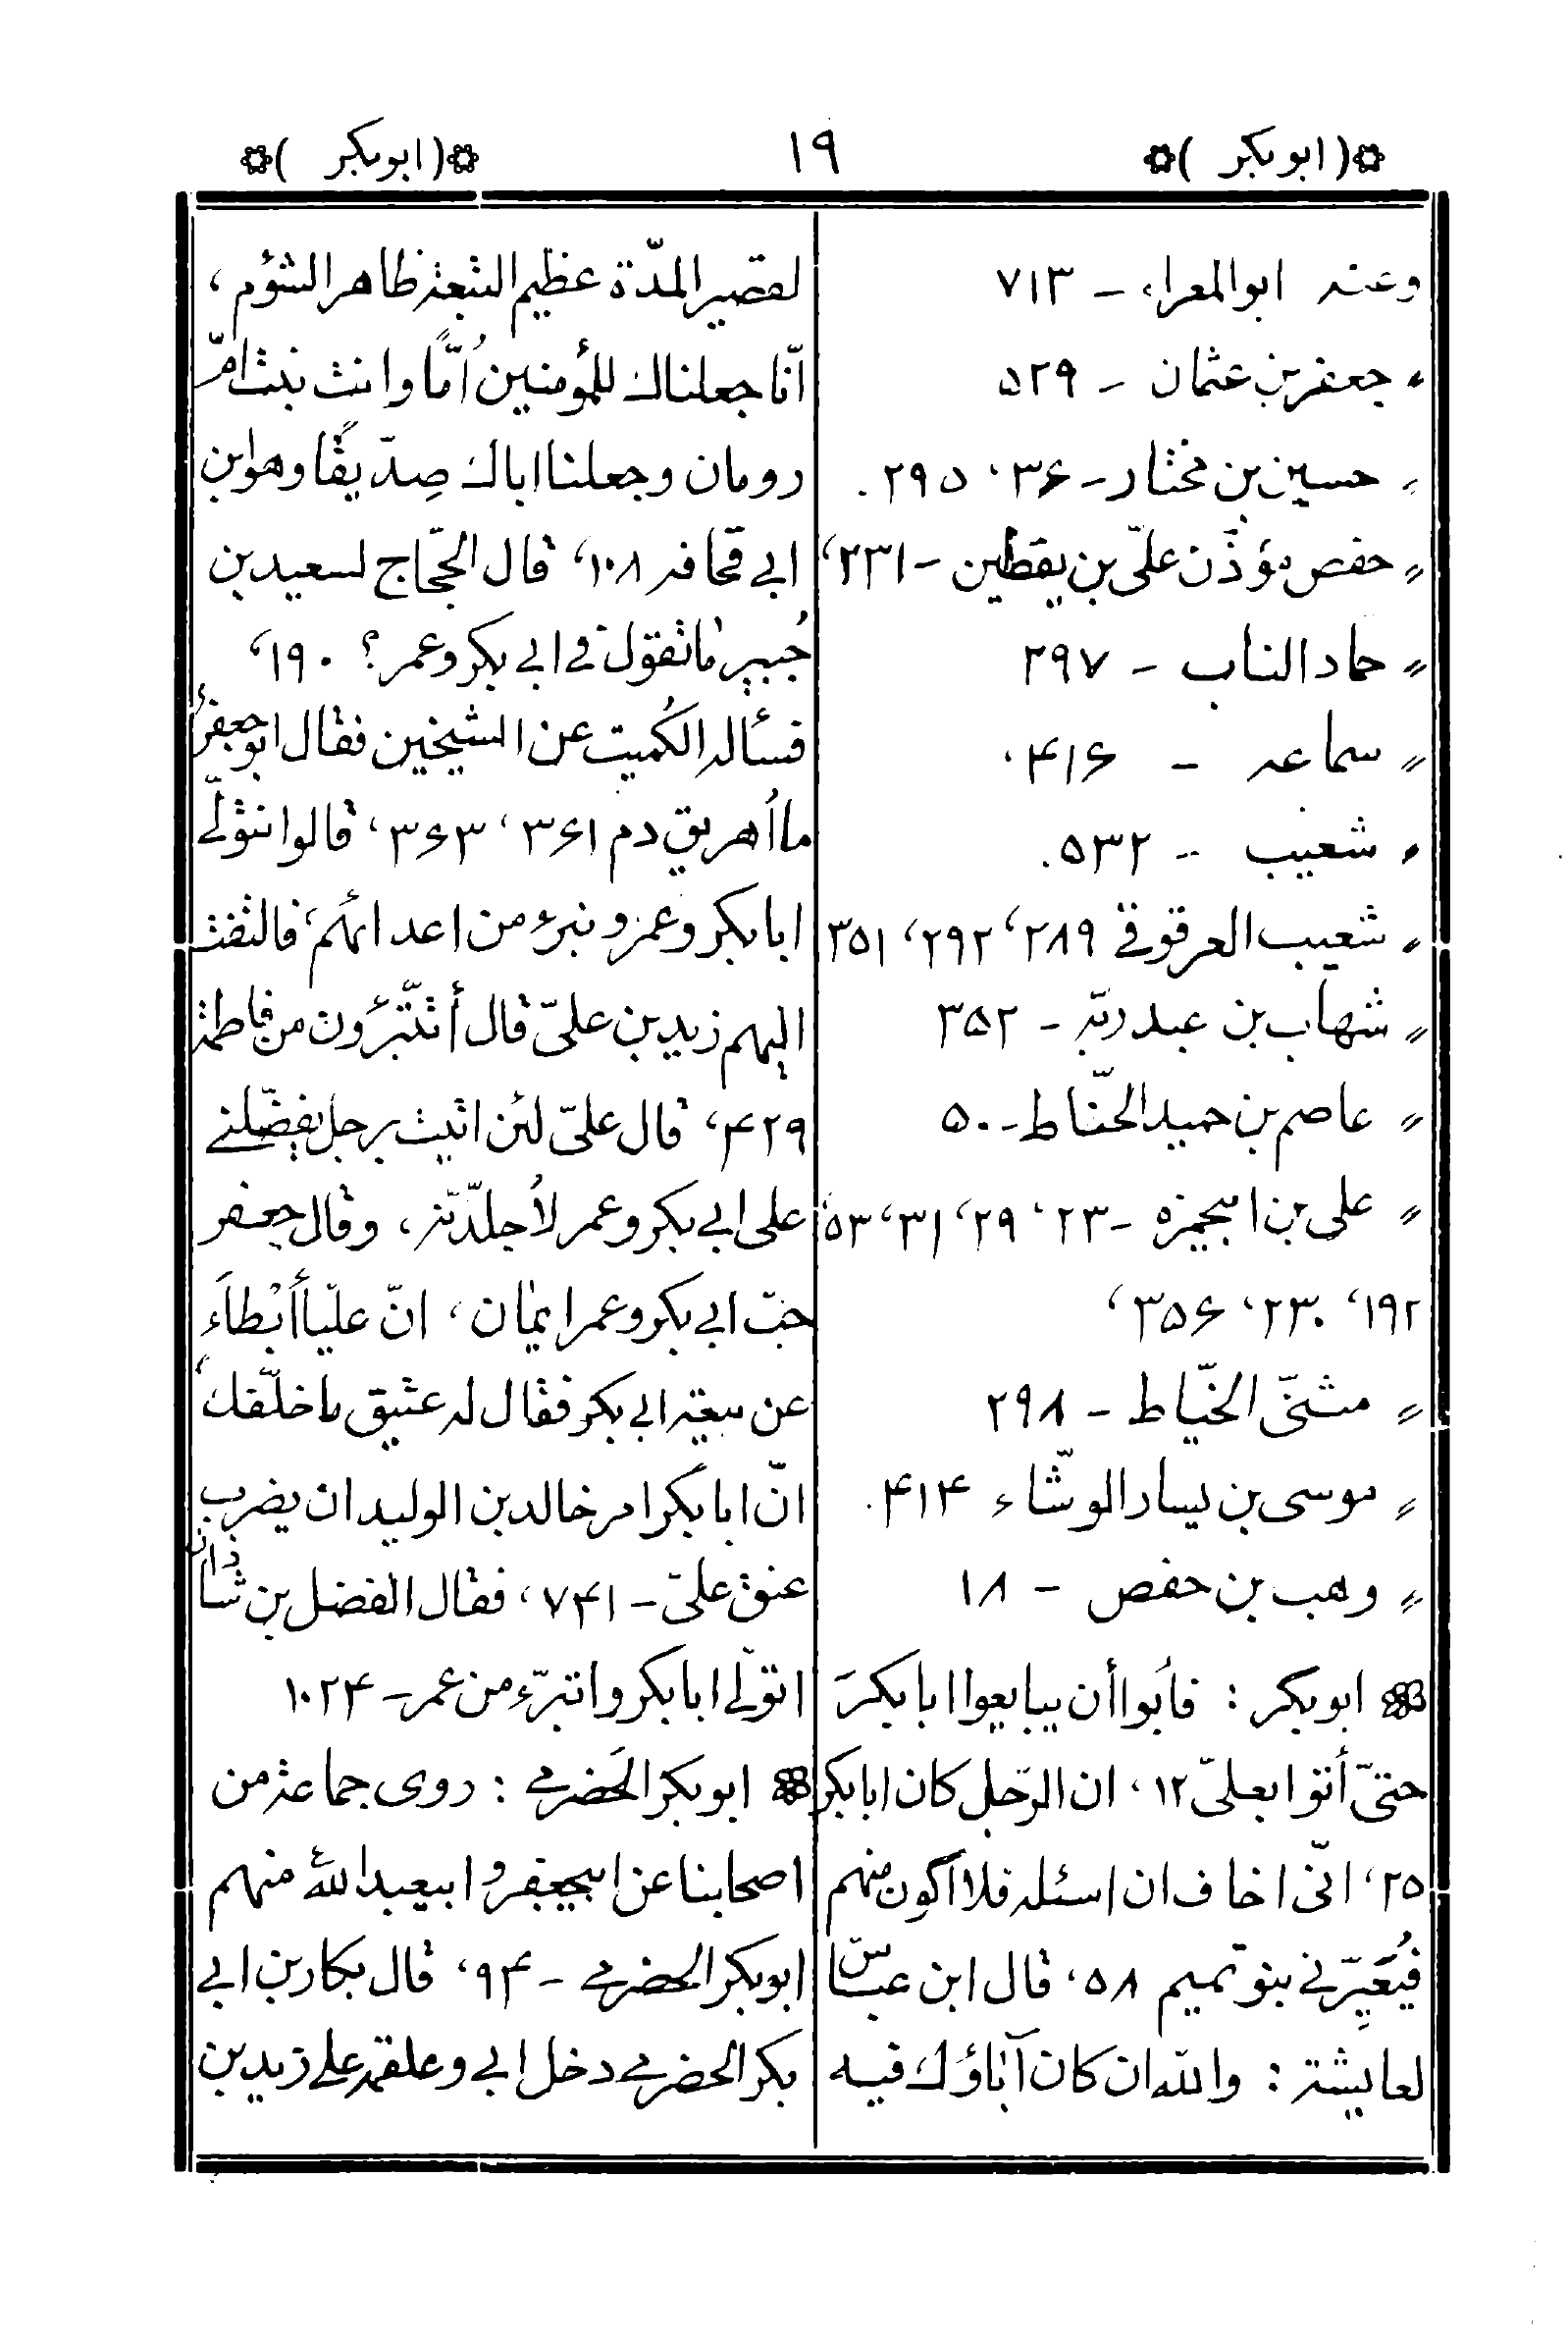 ❁( ابوبكر )❁
۱۹
❁( ابوبكر )❁
وعنه ابوالمعراء - ۷۱۳
〃 جعفر بن عثمان - ۵۲۹
〃 حسين بن مختار - ۳۶، ۲۹۵.
〃 حفص مؤذّن علىّ بن يقطين - ۲۳۱،
〃 حماد الناب - ۲۹۷
〃 سماعه - ۴۱۶،
〃 شعيب - ۵۳۲.
〃 شعيب العرقوقى ۲۸۹، ۲۹۲، ۳۵۱
〃 شهاب بن عبد ربّه - ۳۵۲
〃 عاصم بن حميد الحنّاط - ۵۰
〃 على بن ابيحمزه - ۲۳، ۲۹، ۳۱، ۵۳،
۱۹۲، ۲۳۰، ۳۵۶،
〃 مثنىّ الخيّاط - ۲۹۸
〃 موسى بن يسار الوشّاء ۴۱۴.
〃 وهب بن حفص - ۱۸
❁ ابوبكر : فأبوا أن يبايعوا ابابكرَ
حتىّ أتوا بعلىّ ۱۲، ان الرّجل كان ابابكر
۲۵، انّى اخاف ان اسئله فلا اكون منهم
فيُعَيِّرنى بنو تميم ۵۸، قال ابن عباس
لعايشة : والله ان كان آباؤك فيه
لقصير المدّة عظيم التبعة ظاهر الشؤم ،
انّا جعلناك للمؤمنين اُمًّا وانت بنت امّ
رومان وجعلنا اباك صِدّيقًا وهو ابن
ابى قحافه ۱۰۸، قال الحجّاج لسعيد بن
جُبير ما تقول فى ابى بكر وعمر؟ ۱۹۰،
فسئاله الكُميت عن الشيخين فقال ابوجعفرُ
ما اُهريق دم ۳۶۱، ۳۶۳، قالوا نتولّى
ابابكر وعمر و نبرء من اعدائهم، فالتفت
اليهم زيد بن علىّ قال أتتبّرؤن من فاطمة
۴۲۹، قال علىّ لئن اتيت برجل يفضّلنى
على ابى بكر وعمر لاُجلدّنّه ، وقال جعفر
حبّ ابى بكر وعمر ايمان ، انّ عليّا أَبْطَاَء
عن بيعته ابى بكر فقال له عتيق ما خلّفك،
انّ ابابكر امر خالد بن الوليد ان يضرب
عنق علىّ - ۷۴۱، فقال الفضل بن شاذان
اتولّى ابابكر واتبرّء من عمر - ۱۰۲۴
❁ ابوبكر الحَضرمى : روى جماعة من
اصحابنا عن ابيجعفر و ابيعبدالله منهم
ابوبكر الحضرمى - ۹۴، قال بكار بن ابى
بكر الحضرمى دخل ابى وعلقمه على زيد بن